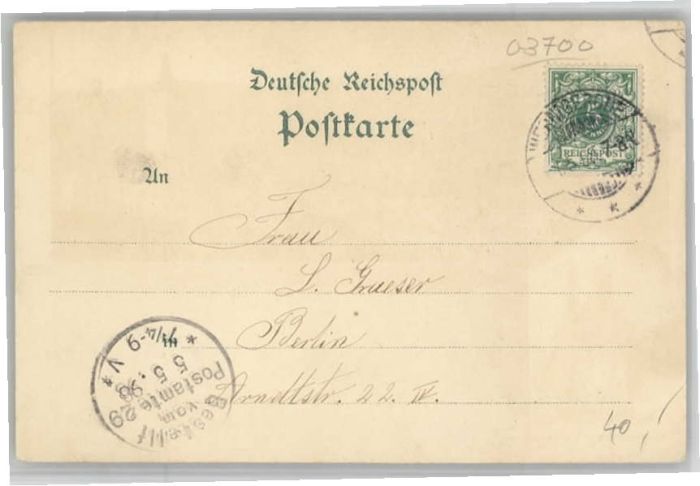 03700
Deutsche Reichspost
Postkarte
REICHSPOST
An
Frau
L. Graeser
in Berlin
Arndtstr. 22. IV.
Bestellt
vom
Postamte 29
5.5.98
7¼-9 V.
40,